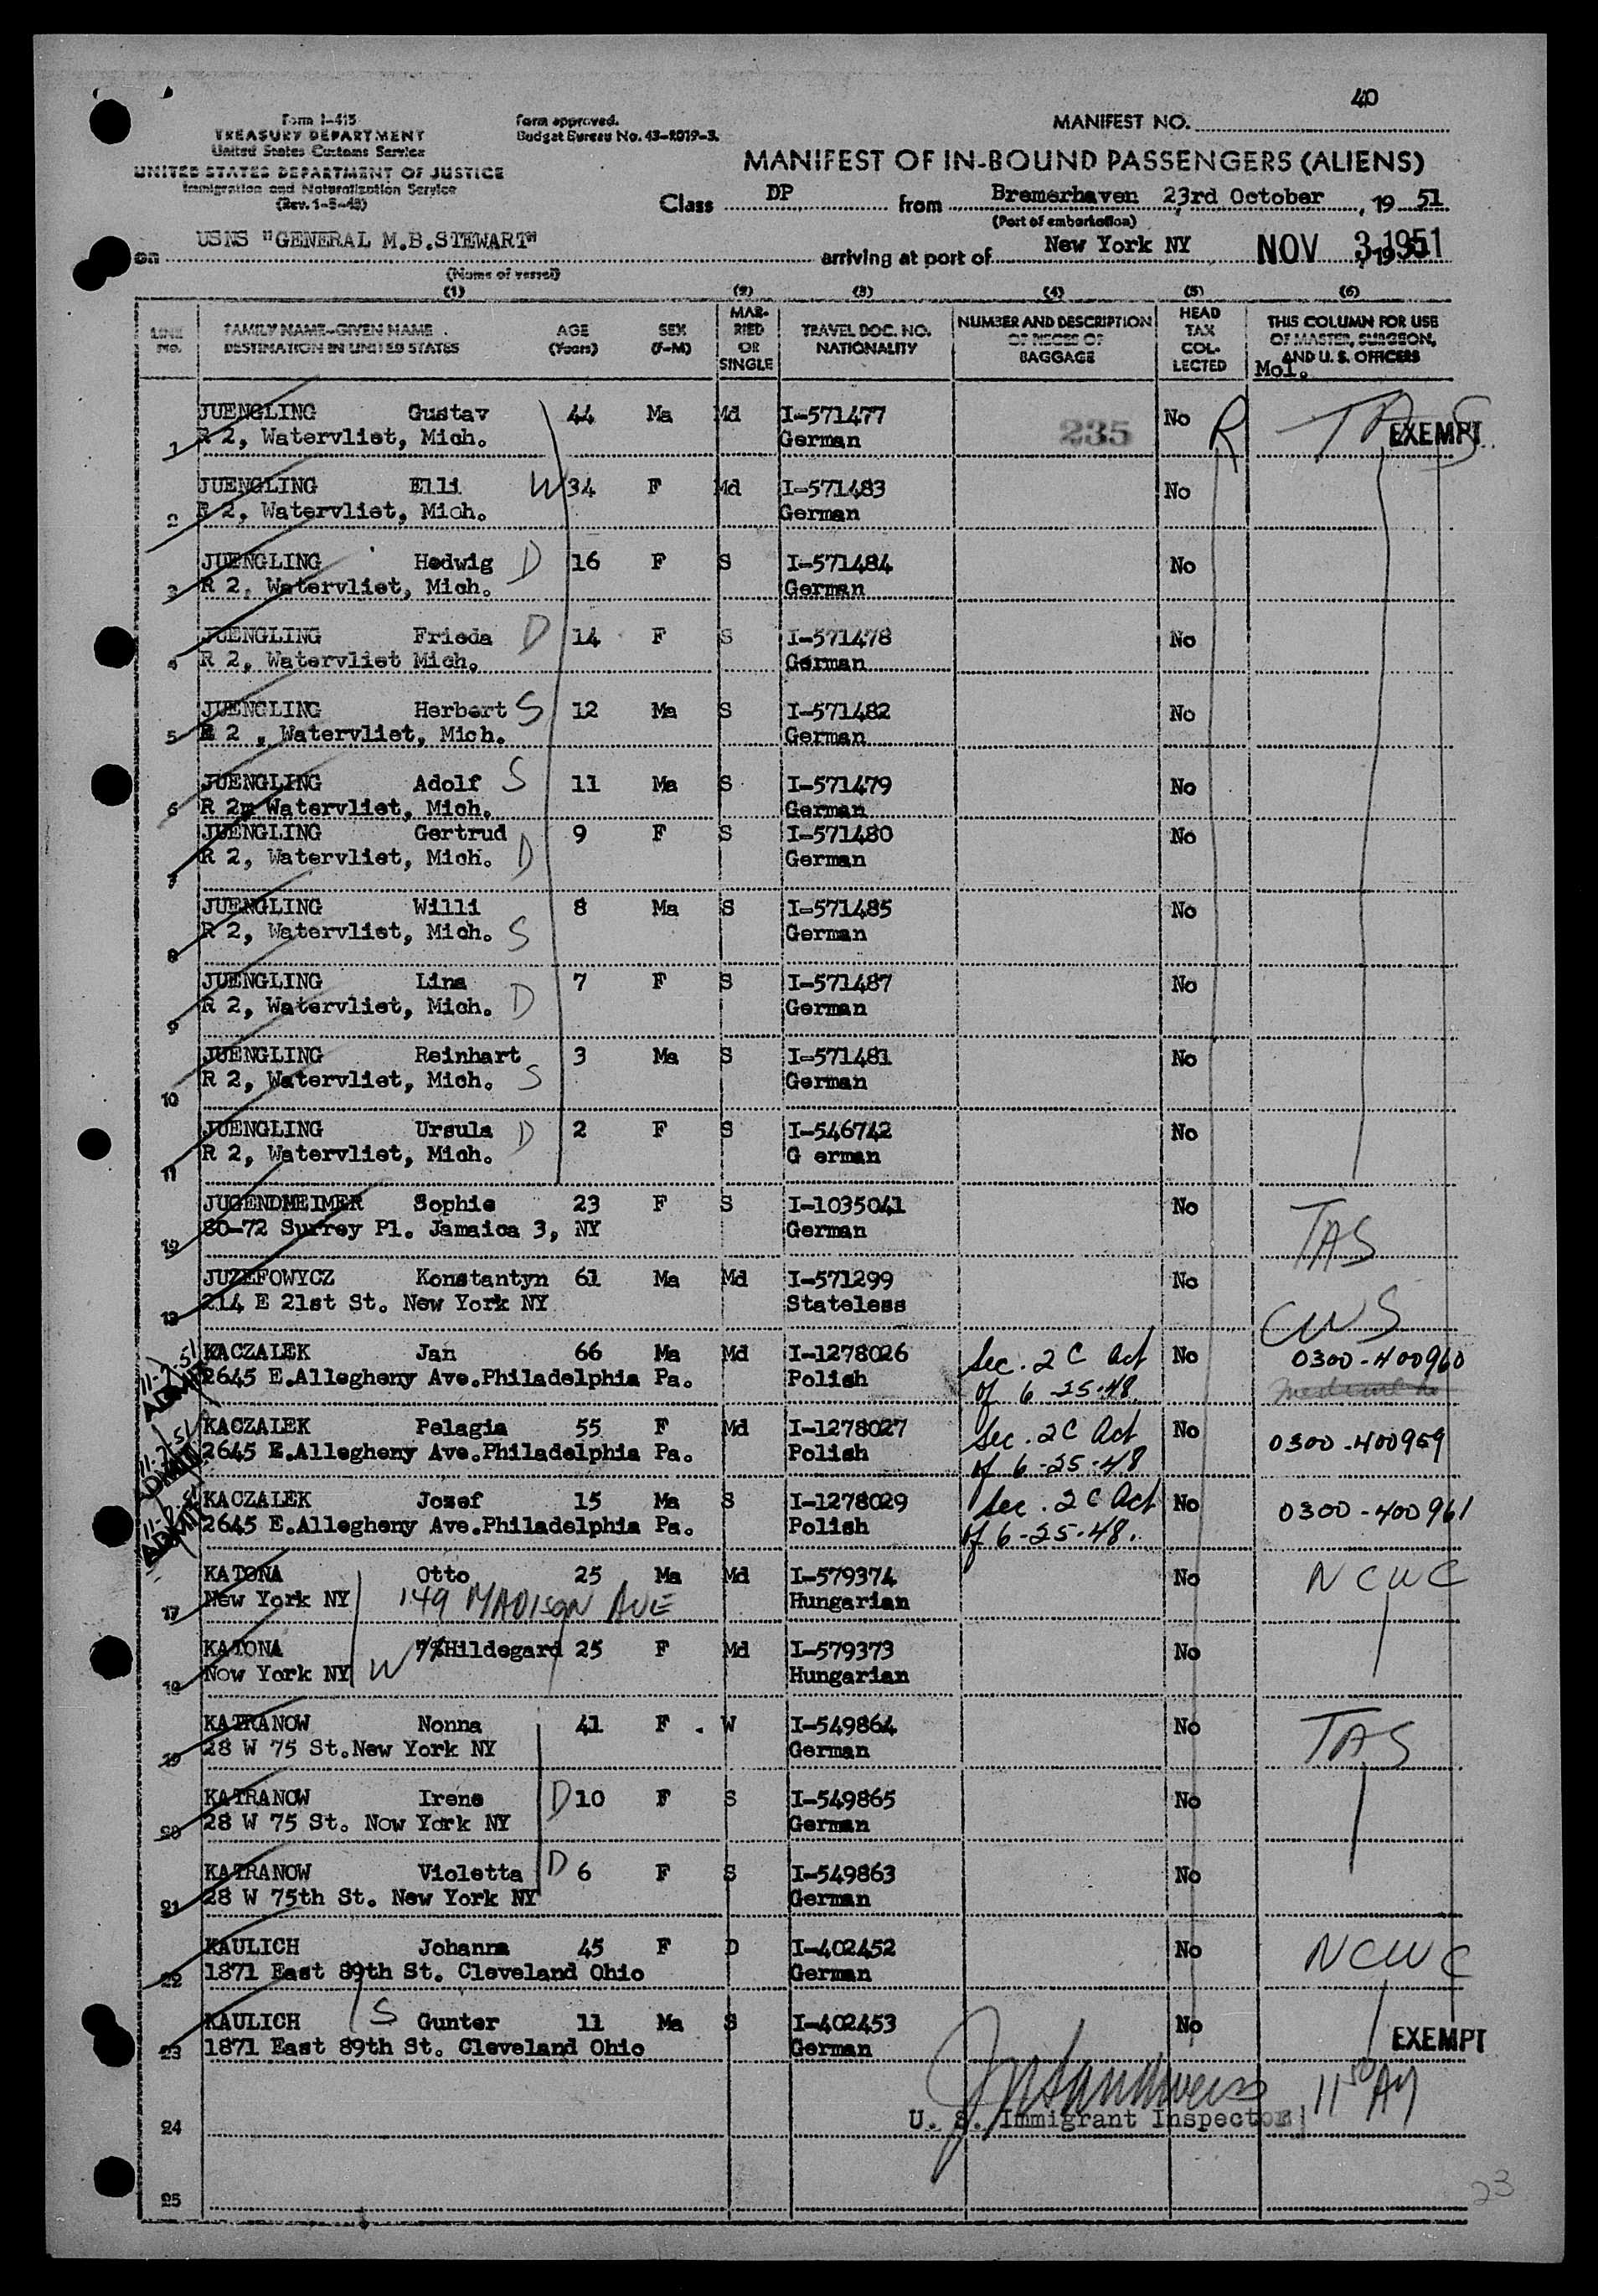 40
Form I-415
TREASURY DEPARTMENT
United States Customs Service
UNITED STATES DEPARTMENT OF JUSTICE
Immigration and Naturalization Service
(Rev. 1-5-48)
Form approved.
Budget Bureau No. 43-R019-3.
MANIFEST NO.
MANIFEST OF IN-BOUND PASSENGERS (ALIENS)
Class DP from Bremerhaven 23rd October, 19 51
(Port of embarkation)
on USNS "GENERAL M.B.STEWART" arriving at port of New York NY NOV 3 1951
(Name of vessel)
(1) (2) (3) (4) (5) (6)
LINE No.
FAMILY NAME-GIVEN NAME
DESTINATION IN UNITED STATES
AGE (Years)
SEX (F-M)
MARRIED OR SINGLE
TRAVEL DOC. NO.
NATIONALITY
NUMBER AND DESCRIPTION OF PIECES OF BAGGAGE
HEAD TAX COLLECTED
THIS COLUMN FOR USE OF MASTER, SURGEON, AND U. S. OFFICERS
Mol.
JUENGLING Gustav 44 Ma Md I-571477 235 No R TAS EXEMPT
1 R 2, Watervliet, Mich. German
JUENGLING Elli W 34 F Md I-571483 No
2 R 2, Watervliet, Mich. German
JUENGLING Hedwig D 16 F S I-571484 No
3 R 2, Watervliet, Mich. German
JUENGLING Frieda D 14 F S I-571478 No
4 R 2, Watervliet Mich. German
JUENGLING Herbert S 12 Ma S I-571482 No
5 R 2 , Watervliet, Mich. German
JUENGLING Adolf S 11 Ma S I-571479 No
6 R 2m Watervliet, Mich. German
JUENGLING Gertrud 9 F S I-571480 No
7 R 2, Watervliet, Mich. D German
JUENGLING Willi 8 Ma S I-571485 No
8 R 2, Watervliet, Mich. S German
JUENGLING Lina 7 F S I-571487 No
9 R 2, Watervliet, Mich. D German
JUENGLING Reinhart 3 Ma S I-571481 No
10 R 2, Watervliet, Mich. S German
JUENGLING Ursula D 2 F S I-546742 No
11 R 2, Watervliet, Mich. G erman
JUGENDHEIMER Sophie 23 F S I-1035041 No
12 80-72 Surrey Pl. Jamaica 3, NY German TAS
JUZEFOWYCZ Konstantyn 61 Ma Md I-571299 No
13 214 E 21st St. New York NY Stateless CWS
11-2-51 ADMIT KACZALEK Jan 66 Ma Md I-1278026 Sec. 2 C Act No 0300-400960
2645 E.Allegheny Ave.Philadelphia Pa. Polish of 6-25-48
11-2-51 ADMIT KACZALEK Pelagia 55 F Md I-1278027 Sec. 2C Act No 0300-400959
2645 E.Allegheny Ave.Philadelphia Pa. Polish of 6-25-48
11-2-51 ADMIT KACZALEK Jozef 15 Ma S I-1278029 Sec. 2 C Act No 0300-400961
2645 E.Allegheny Ave.Philadelphia Pa. Polish of 6-25-48.
KATONA Otto 25 Ma Md I-579374 No NCWC
17 New York NY 149 MADISON AVE Hungarian
KATONA Hildegard 25 F Md I-579373 No
18 Now York NY W Hungarian
KATRANOW Nonna 41 F . W I-549864 No TAS
19 28 W 75 St.New York NY German
KATRANOW Irene D 10 F S I-549865 No
20 28 W 75 St. Now York NY German
KATRANOW Violetta D 6 F S I-549863 No
21 28 W 75th St. New York NY German
KAULICH Johanna 45 F D I-402452 No NCWC
22 1871 East 89th St. Cleveland Ohio German
KAULICH S Gunter 11 Ma S I-402453 No EXEMPT
23 1871 East 89th St. Cleveland Ohio German
24 U. S. Immigrant Inspector
25
23